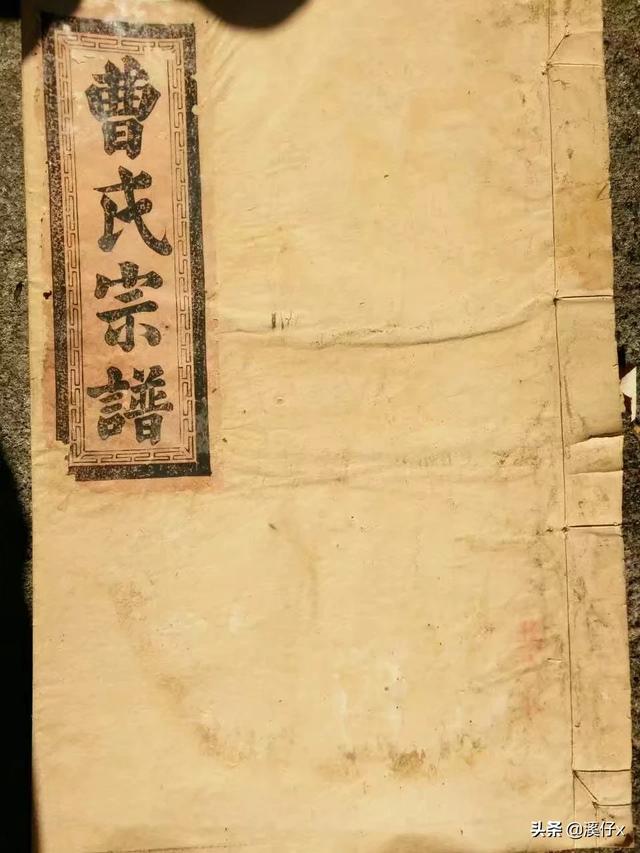 曹氏宗譜
头条 @溪仔x